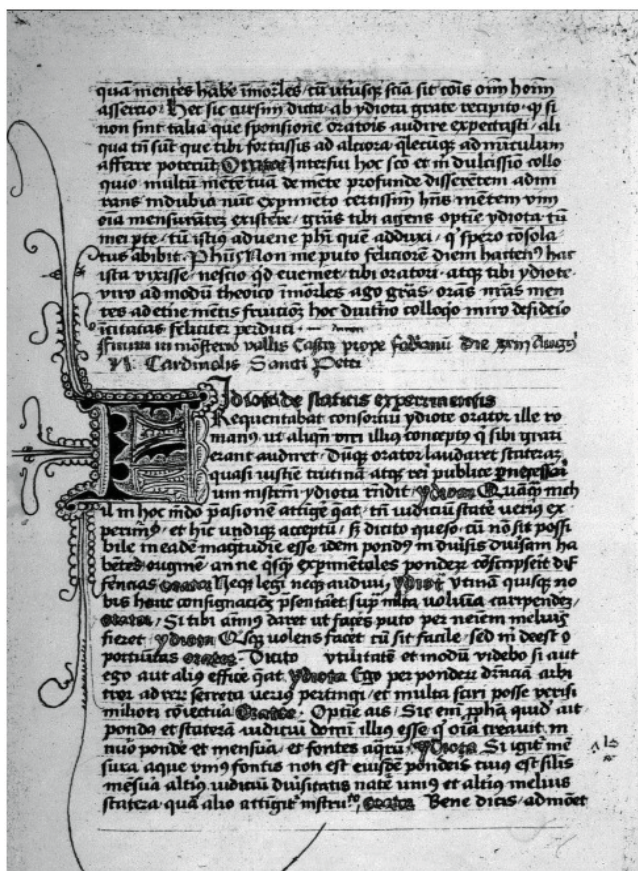 quā mentes habē īmorťles / cū utriusqȝ scīa sit cōis oīm hoīm
assercio. Hec sic cursim dicta ab ydiota grate recipito. qȝ si
non sint talia que sponsione oratoris audire expectasti / ali
qua tn̄ sūt que tibi fortassis ad alciora qlecūqȝ admīculum
afferre poterūt Orator Interfui huic scō et m̄ dulcissīo collo
quio multū mēte tuā de mēte profunde disserētem admi
rans indubia nūc experimēto certissim hn̄s mētem vim
oīa mensurātē existere / grās tibi agens optīe ydiota tū
mei pte / tū istiꝰ aduene phī quē adduxi / qȝ spero cōsola
tus abibit. Phūs Non me puto feliciorē diem hactenꝰ hac
ista vixisse / nescio qd eueniet / tibi oratori atqȝ tibi ydiote
viro ad modū theorico īmorťles ago grās / orās nrās men
tes ad etīne mētis fruitioȝ hoc diutīno colloqio miro desiderio
īcitatas feliciter perduci. Amen
Finiui in mōsterio vallis Castri prope fabrianū die Augꝰ
N. Cardinalis Sancti Petri
Idiota de staticis experimentis
FRequentabat consorciū ydiote orator ille ro
manꝰ ut aliqn̄ viri illiꝰ conceptꝰ qȝ sibi grati
erant audiret. Dūqȝ orator laudaret staterā
quasi iusticie trutinā atqȝ rei publice pernecessari
um instrm̄ ydiota rn̄dit / ydiota Quāqȝ nich
il in hoc mūdo pcisionē attigē qat / tn̄ iudiciū state veriꝰ ex
perimꝰ et hic undiqȝ acceptū / sȝ dicito queso / cū nō sit possi
bile in eadē magtudie esse idem pondꝰ in diuisis diuisam ha
bētes originē / an ne qsqȝ experimētales ponderȝ cōscripserit dif
ferēcias orator Neqȝ legi neqȝ audiui / ydiota vtinā quisqȝ no
bis hanc consignacionē psentaret / supra mlta volumīa caripenderē
orator / Si tibi animꝰ daret ut facēs puto per neminem meliꝰ
fieret ydiota Qsqȝ volens facēt cū sit facile / sed m̄ deest o
portunitas orator. Dicito vtilitatē et modū videbo si aut
ego aut aliꝰ efficē qat ydiota Ego per ponderȝ driām arbi
tror ad rerȝ secreta veriꝰ pertingi / et multa sciri posse verisi
miliori coniectura orator. Optīe ais / Sic em̄ prpha quidā ait
pondꝰ et staterā iudiciū domī illiꝰ esse qȝ oīa creauit in
nūo ponde et mensura / et fontes aqrȝ / ydiota Si igitr mē
sura aque vniꝰ fontis non est eiusdē ponderis cuiꝰ est silis
mēsura altiꝰ / iudiciū diuisitatis naťe vniꝰ et altiꝰ meliꝰ
statera quā alio attigitr instruto / orator Bene dicis / admoēt